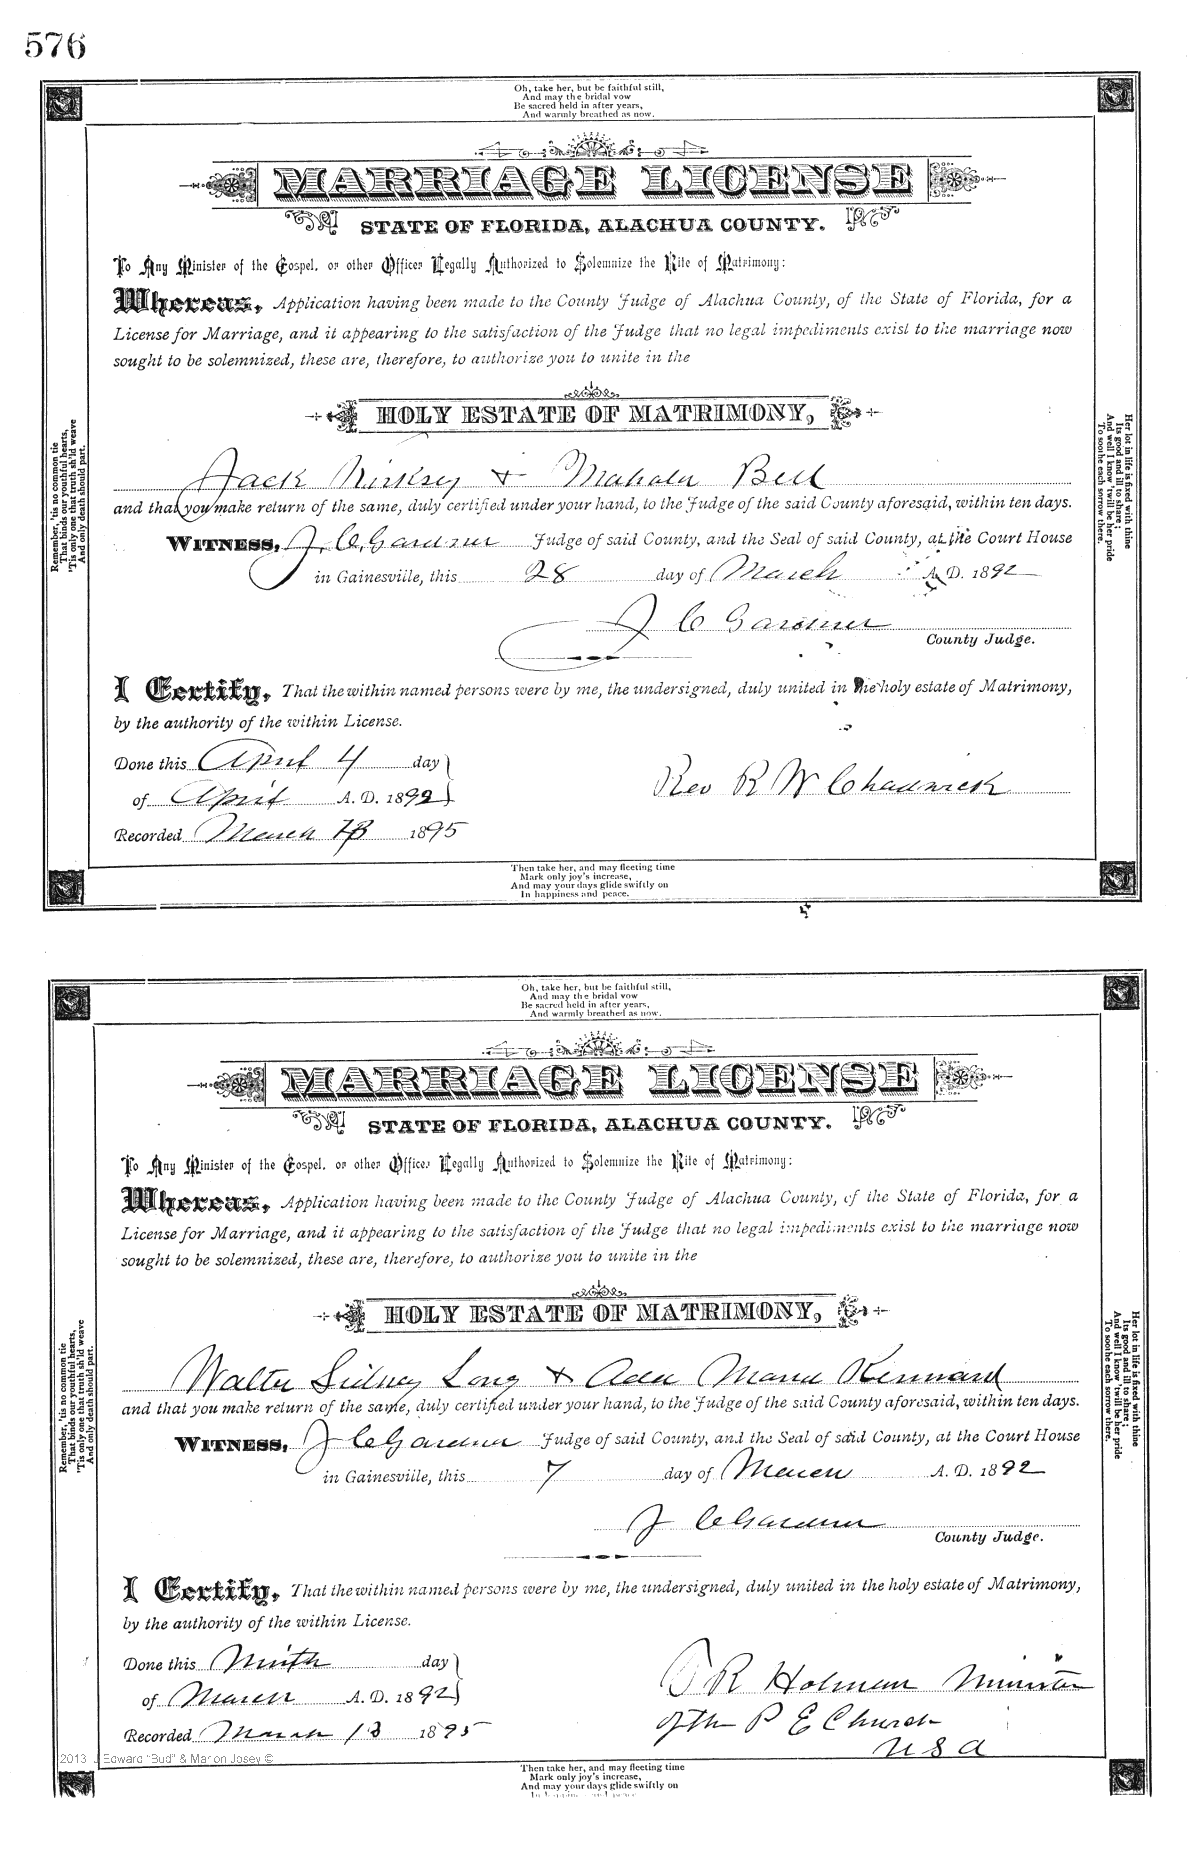 576
Oh, take her, but be faithful still,
And may the bridal vow
Be sacred held in after years,
And warmly breathed as now.
MARRIAGE LICENSE
STATE OF FLORIDA, ALACHUA COUNTY.
To Any Minister of the Gospel, or other Officer Legally Authorized to Solemnize the Rite of Matrimony:
Whereas, Application having been made to the County Judge of Alachua County, of the State of Florida, for a
License for Marriage, and it appearing to the satisfaction of the Judge that no legal impediments exist to the marriage now
sought to be solemnized, these are, therefore, to authorize you to unite in the
HOLY ESTATE OF MATRIMONY,
Jack & Bell
and that you make return of the same, duly certified under your hand, to the Judge of the said County aforesaid, within ten days.
WITNESS, J. C. Gardner Judge of said County, and the Seal of said County, at the Court House
in Gainesville, this 28 day of March A. D. 1892
J C Gardner
County Judge.
I Certify, That the within named persons were by me, the undersigned, duly united in the holy estate of Matrimony,
by the authority of the within License.
Done this April 4 day
of April A. D. 1892
Rev R W Chadwick
Recorded March 13 1895
Then take her, and may fleeting time
Mark only joy's increase,
And may your days glide swiftly on
In happiness and peace.
Remember, 'tis no common tie
That binds our youthful hearts,
'Tis only one that truth sh'ld weave
And only death should part.
Her lot in life is fixed with thine
Its good and ill to share;
And well I know 'twill be her pride
To soothe each sorrow there.
Oh, take her, but be faithful still,
And may the bridal vow
Be sacred held in after years,
And warmly breathed as now.
MARRIAGE LICENSE
STATE OF FLORIDA, ALACHUA COUNTY.
To Any Minister of the Gospel, or other Officer Legally Authorized to Solemnize the Rite of Matrimony:
Whereas, Application having been made to the County Judge of Alachua County, of the State of Florida, for a
License for Marriage, and it appearing to the satisfaction of the Judge that no legal impediments exist to the marriage now
sought to be solemnized, these are, therefore, to authorize you to unite in the
HOLY ESTATE OF MATRIMONY,
Walter Sidney Long & Ada Maria Kennard
and that you make return of the same, duly certified under your hand, to the Judge of the said County aforesaid, within ten days.
WITNESS, J C Gardner Judge of said County, and the Seal of said County, at the Court House
in Gainesville, this 7 day of March A. D. 1892
J C Gardner
County Judge.
I Certify, That the within named persons were by me, the undersigned, duly united in the holy estate of Matrimony,
by the authority of the within License.
Done this Ninth day
of March A. D. 1892
R Holman Minister
of the P E Church
U S A
Recorded March 13 1895
2013 J Edward "Bud" & Marion Josey ©
Then take her, and may fleeting time
Mark only joy's increase,
And may your days glide swiftly on
In happiness and peace
Remember, 'tis no common tie
That binds our youthful hearts,
'Tis only one that truth sh'ld weave
And only death should part.
Her lot in life is fixed with thine
Its good and ill to share;
And well I know 'twill be her pride
To soothe each sorrow there.